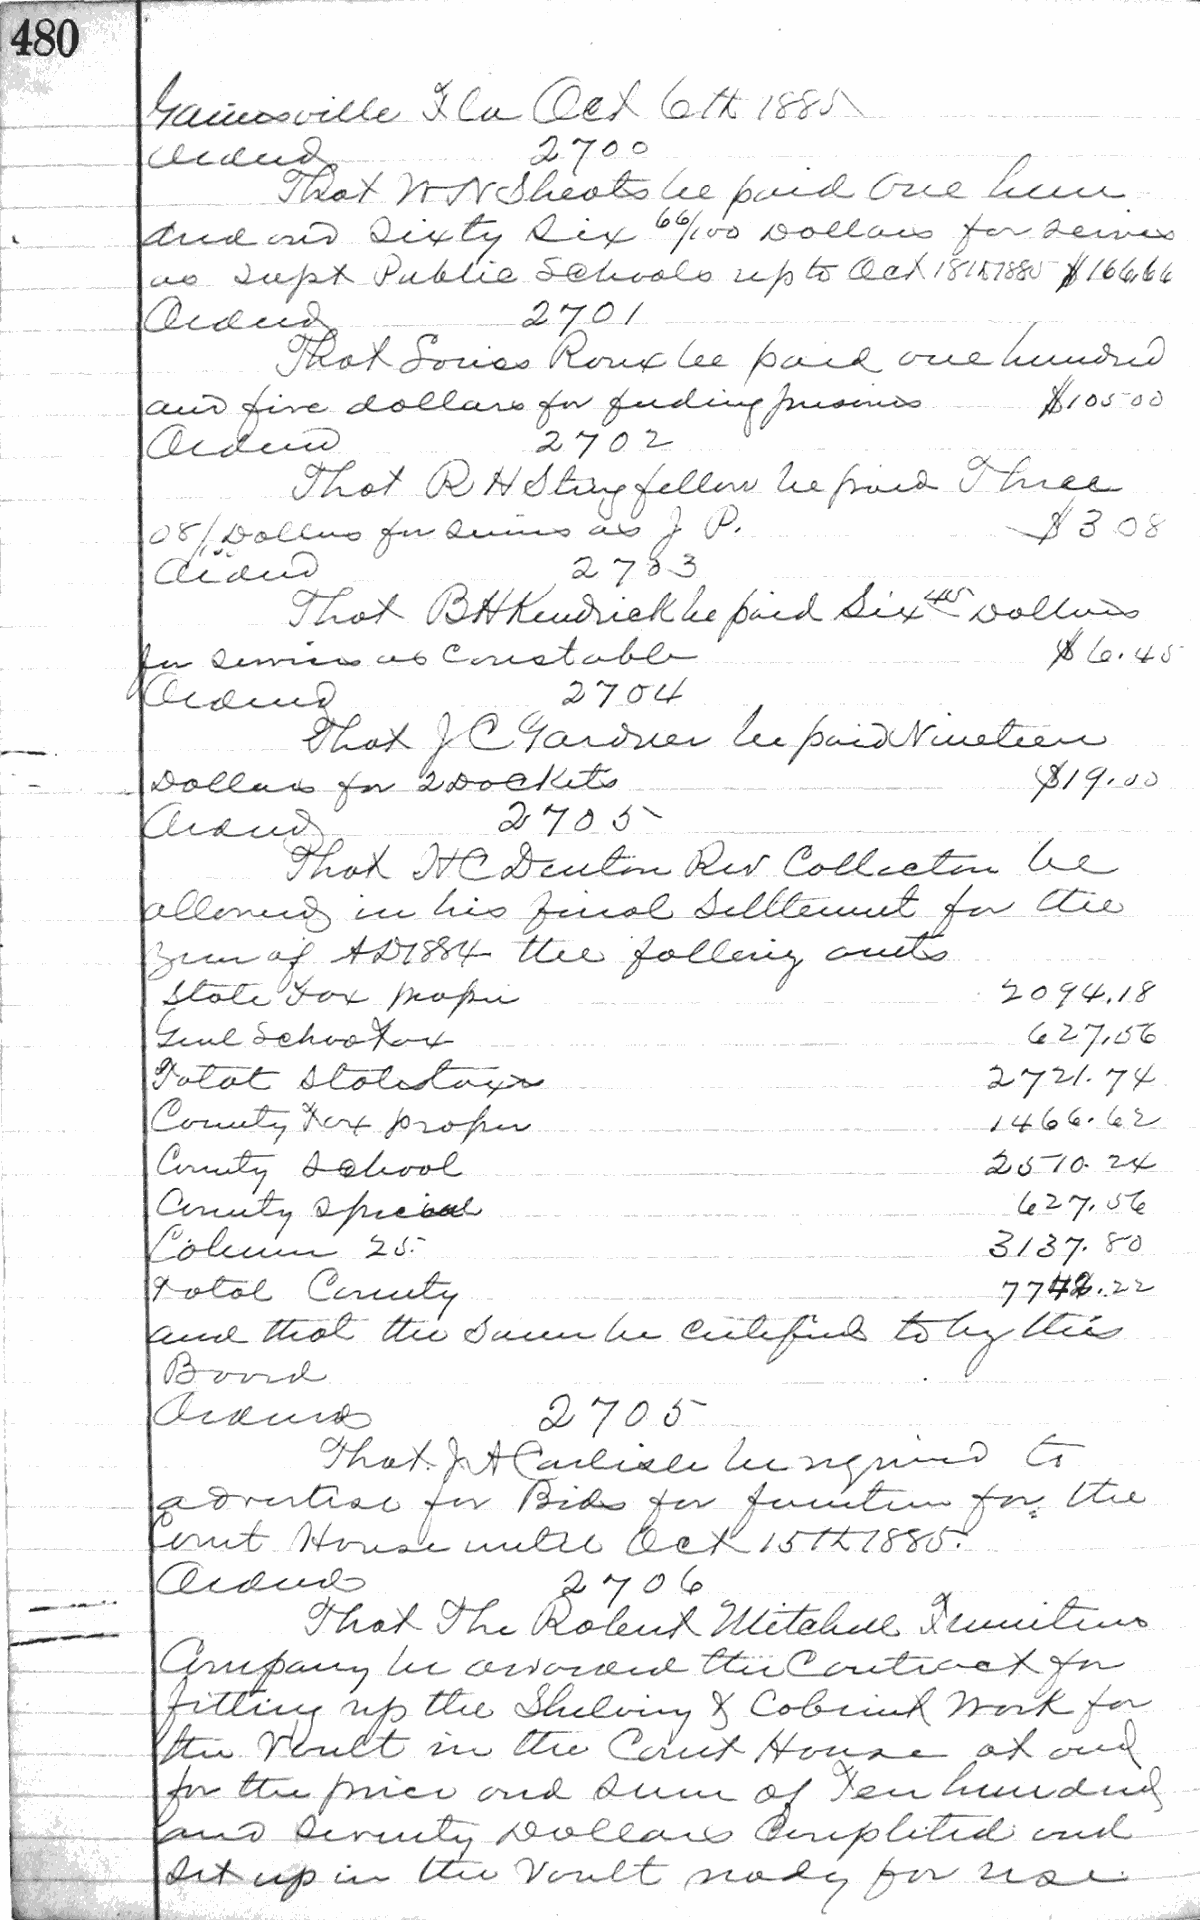 480
Gainesville Fla Oct 6th 1885
Ordered 2700
That W N Sheats be paid One hun
dred and Sixty Six 66/100 Dollars for services
as Supt Public Schools up to Oct 18th 1885 $166.66
Ordered 2701
That Louis Roux be paid one hundred
and five dollars for feeding prisoners $105 00
Ordered 2702
That R H Stringfellow be paid Three
08/100 Dollars for services as J P. $3 08
Ordered 2703
That B H Kendrick be paid Six 45 Dollars
for services as Constable $6.45
Ordered 2704
That J C Gardner be paid Nineteen
Dollars for 2 Dockets $19.00
Ordered 2705
That H C Denton Rev Collector be
allowed in his final Settlement for the
year of AD 1884 the following amts
State Tax proper 2094.18
Genl School Tax 627.56
Total State taxes 2721.74
County Tax proper 1466.62
County School 2510.24
County Special 627.56
Column 25. 3137.80
Total County 7742.22
and that the Same be certified to by this
Board
Ordered 2705
That J A Carlisle be required to
advertise for Bids for furniture for the
Court House until Oct 15th 1885.
Ordered 2706
That The Robert Mitchell Furniture
Company be awarded the Contract for
fitting up the Shelving & Cabinet Work for
the Vault in the Court House at and
for the price and sum of Ten hundred
and Seventy Dollars Completed and
Set up in the Vault ready for use